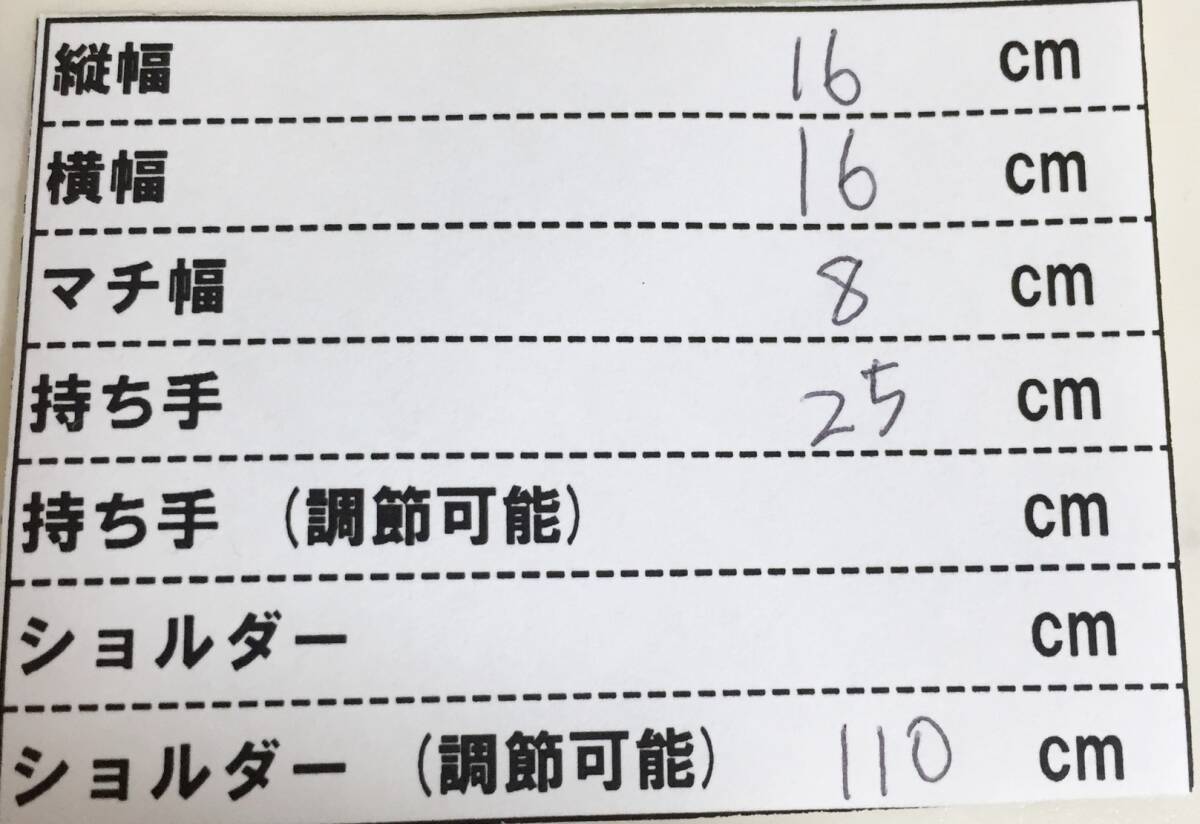 縦幅 16 cm
横幅 16 cm
マチ幅 8 cm
持ち手 25 cm
持ち手 (調節可能) cm
ショルダー cm
ショルダー (調節可能) 110 cm